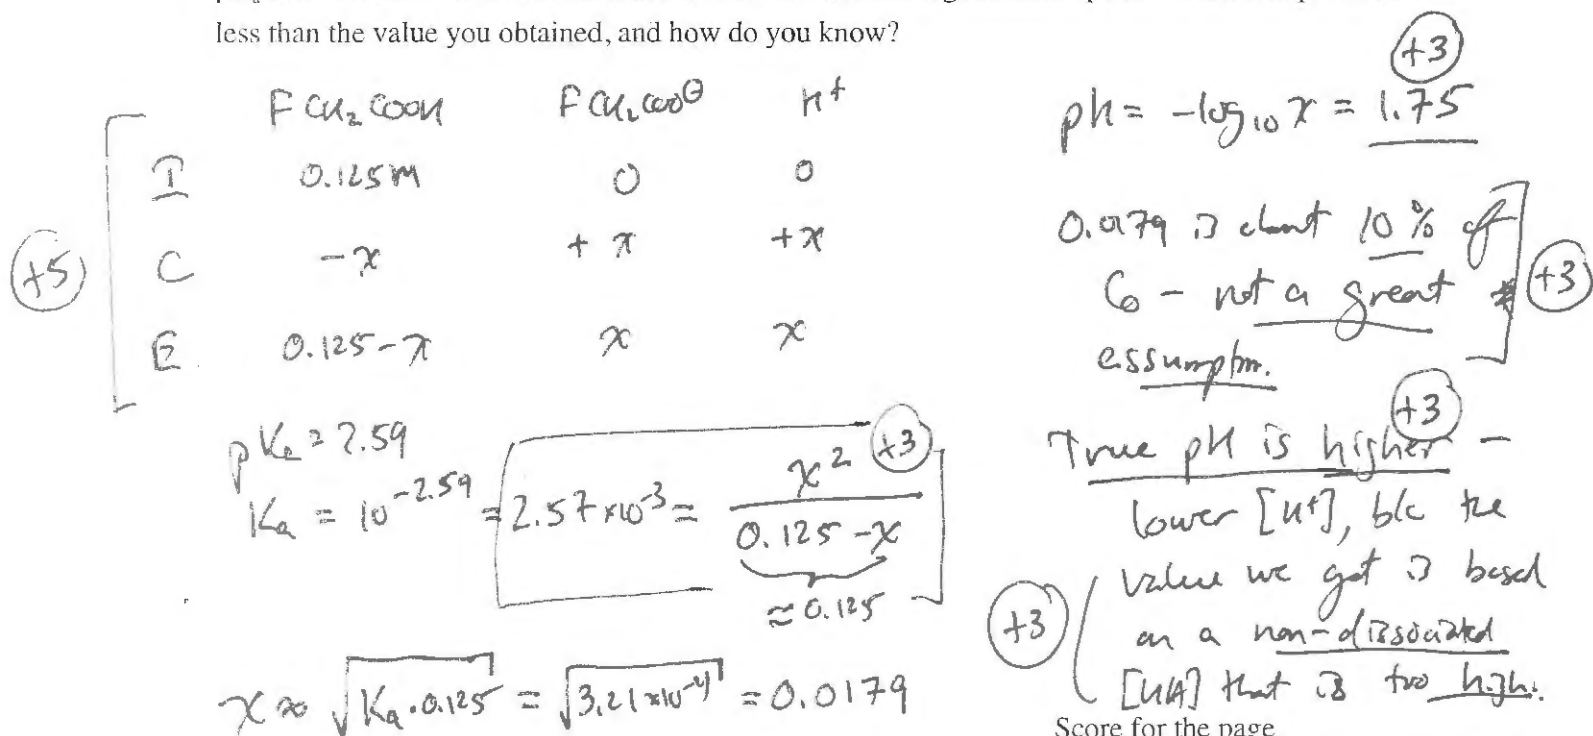 less than the value you obtained, and how do you know?
FCH₂COOH FCH₂COO⊖ H⁺
I 0.125M 0 0
+5
C -x +x +x
E 0.125-x x x
pKa = 2.59
Ka = 10^-2.59 = 2.57×10^-3 = x² / (0.125-x)
+3
≈ 0.125
x ≈ √(Ka·0.125) = √(3.21×10^-4) = 0.0179
+3
pH = -log₁₀ x = 1.75
0.0179 is about 10% of
C₀ - not a great
+3
assumption.
+3
True pH is higher -
lower [H⁺], b/c the
value we got is based
+3
on a non-dissociated
[HA] that is too high.
Score for the page